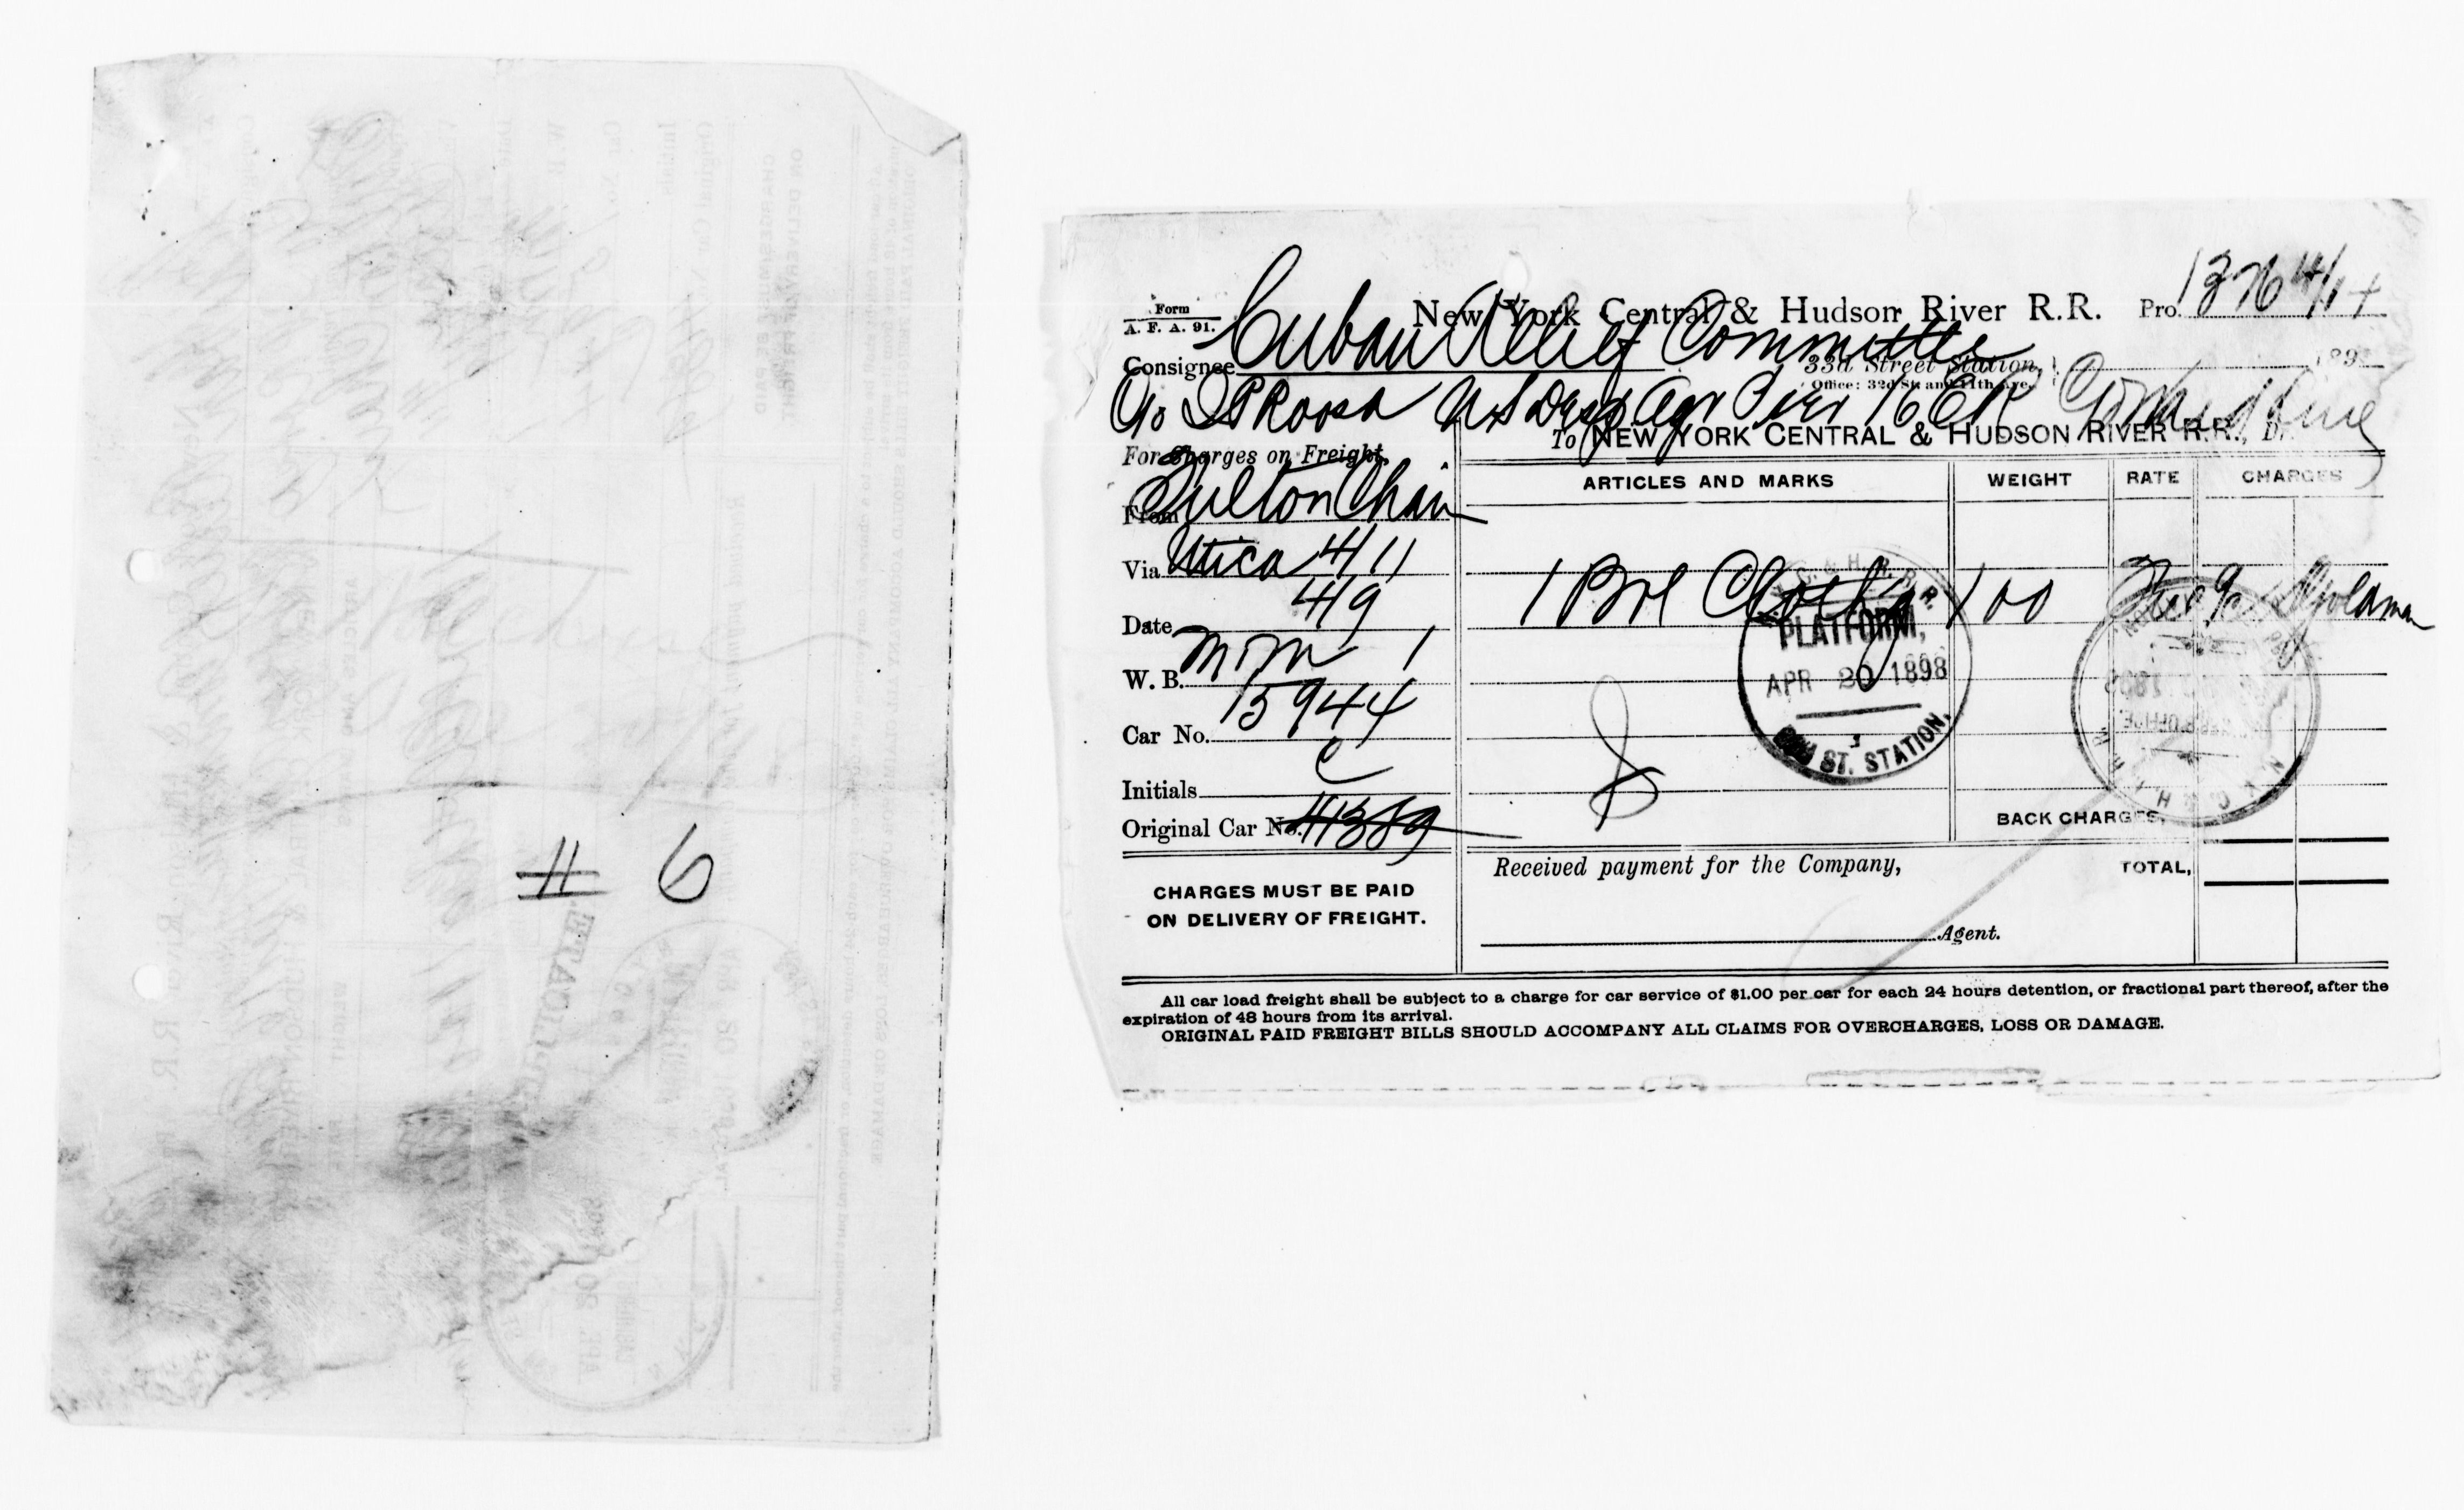 # 6
Form
A. F. A. 91.
New York Central & Hudson River R.R. Pro. 1376 4/14
Consignee Cuban Relief Committee
33d Street Station, 189
Office: 32d St. and 11th Ave.
c/o Roosa U S Desp Agt Pier 16 ER
To NEW YORK CENTRAL & HUDSON RIVER R.R., Dr.
For Charges on Freight,
From Fulton Chain
Via Utica 4/11
Date 4/9
W. B. MM 1
Car No. 15944
Initials C
Original Car No. 41389
ARTICLES AND MARKS WEIGHT RATE CHARGES
1 Brl Clothg 100
N.Y.C. & H.R.R.R.
PLATFORM,
APR 20 1898
3
ST. STATION,
BACK CHARGES,
TOTAL,
CHARGES MUST BE PAID
ON DELIVERY OF FREIGHT.
Received payment for the Company,
Agent.
All car load freight shall be subject to a charge for car service of $1.00 per car for each 24 hours detention, or fractional part thereof, after the
expiration of 48 hours from its arrival.
ORIGINAL PAID FREIGHT BILLS SHOULD ACCOMPANY ALL CLAIMS FOR OVERCHARGES, LOSS OR DAMAGE.